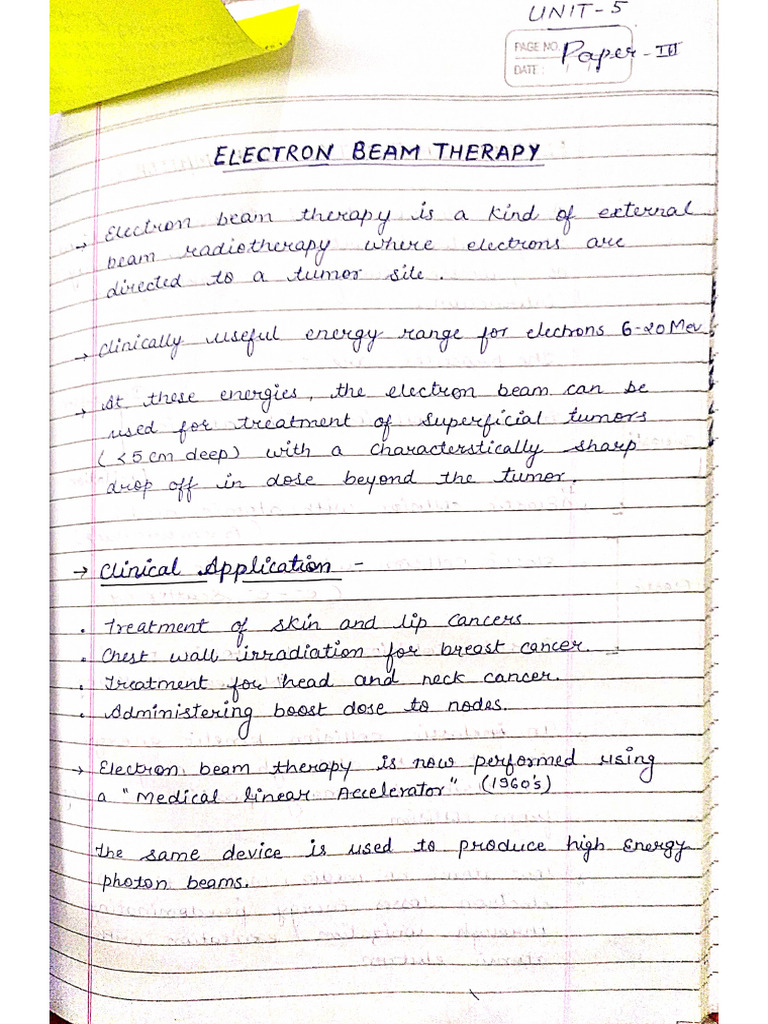 UNIT-5
PAGE NO.
Paper-III
DATE:
ELECTRON BEAM THERAPY
→ Electron beam therapy is a kind of external
beam radiotherapy where electrons are
directed to a tumor site.
→ Clinically useful energy range for electrons 6-20 Mev
→ At these energies, the electron beam can be
used for treatment of superficial tumors
(<5 cm deep) with a characterstically sharp
drop off in dose beyond the tumor.
→ Clinical Application -
• Treatment of skin and lip cancers
• Chest wall irradiation for breast cancer.
• Treatment for head and neck cancer.
• Administering boost dose to nodes.
→ Electron beam therapy is now performed using
a "Medical linear Accelerator" (1960's)
the same device is used to produce high Energy
photon beams.